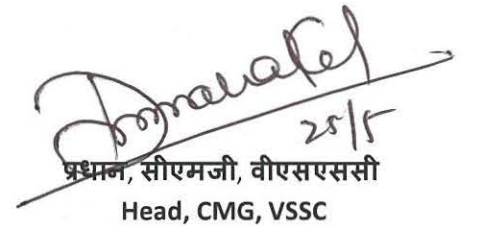 25/5
प्रधान, सीएमजी, वीएसएससी
Head, CMG, VSSC